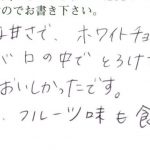 のでお書き下さい。
甘さで、ホワイトチョ
が口の中でとろけて
おいしかったです。
、フルーツ味も食